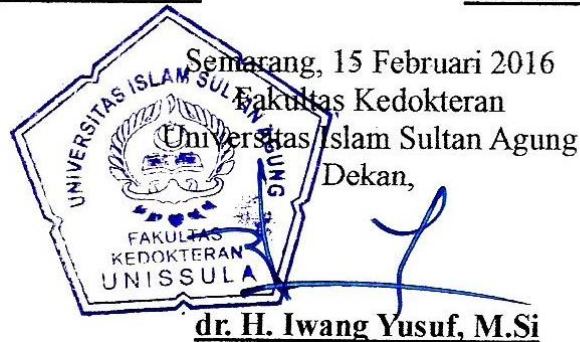 Semarang, 15 Februari 2016
Fakultas Kedokteran
Universitas Islam Sultan Agung
Dekan,
UNIVERSITAS ISLAM SULTAN AGUNG
FAKULTAS
KEDOKTERAN
UNISSULA
dr. H. Iwang Yusuf, M.Si